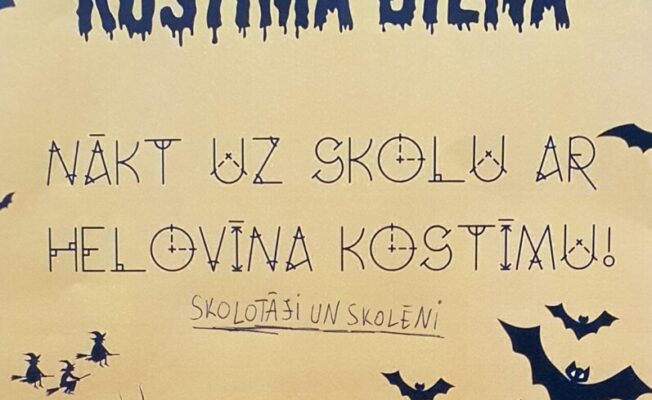 KOSTĪMA DIENA
NĀKT UZ SKOLU AR
HELOVĪNA KOSTĪMU!
SKOLOTĀJI UN SKOLĒNI